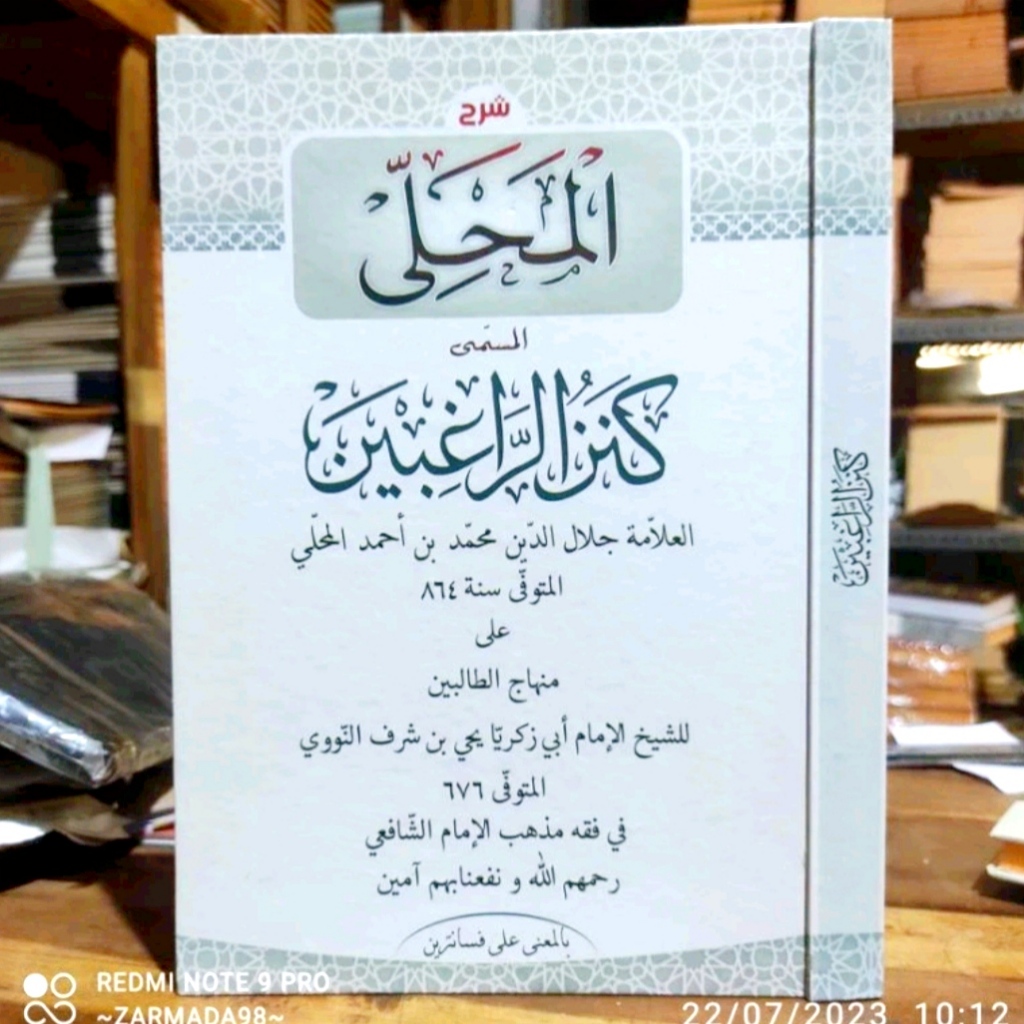 شرح
المحلّي
المسمّى
كَنَزُ الرَّاغِبِينَ
العلاّمة جلال الدّين محمّد بن أحمد المحلّي
المتوفّى سنة ٨٦٤
على
منهاج الطالبين
للشيخ الإمام أبي زكريّا يحي بن شرف النّووي
المتوفّى ٦٧٦
في فقه مذهب الإمام الشّافعي
رحمهم الله و نفعنابهم آمين
بالمعنى على فسانترين
كنز الراغبين
REDMI NOTE 9 PRO
~ZARMADA98~
22/07/2023 10:12